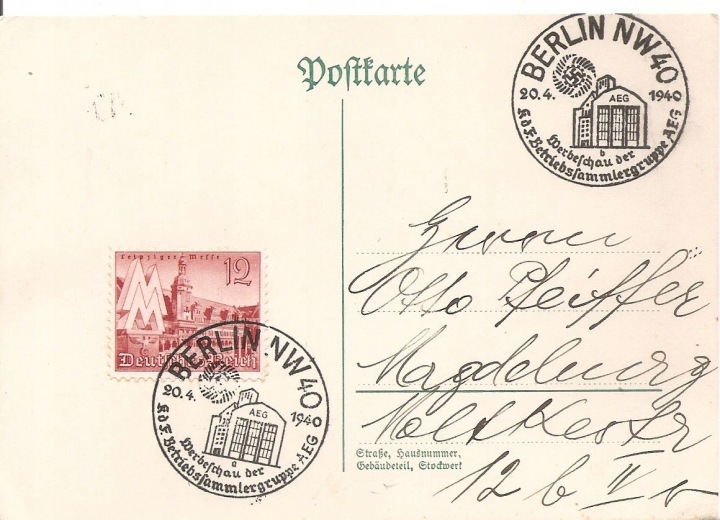 Postkarte
BERLIN NW 40
20.4. 1940
AEG
b
Werbeschau der
KdF. Betriebssammlergruppe AEG
Herrn
Otto Pfeiffer
Magdeburg
Moltkestr
12 b IV
Straße, Hausnummer,
Gebäudeteil, Stockwerk
Leipziger Messe
12
MM
Deutsches Reich
BERLIN NW 40
20.4. 1940
AEG
a
Werbeschau der
KdF. Betriebssammlergruppe AEG